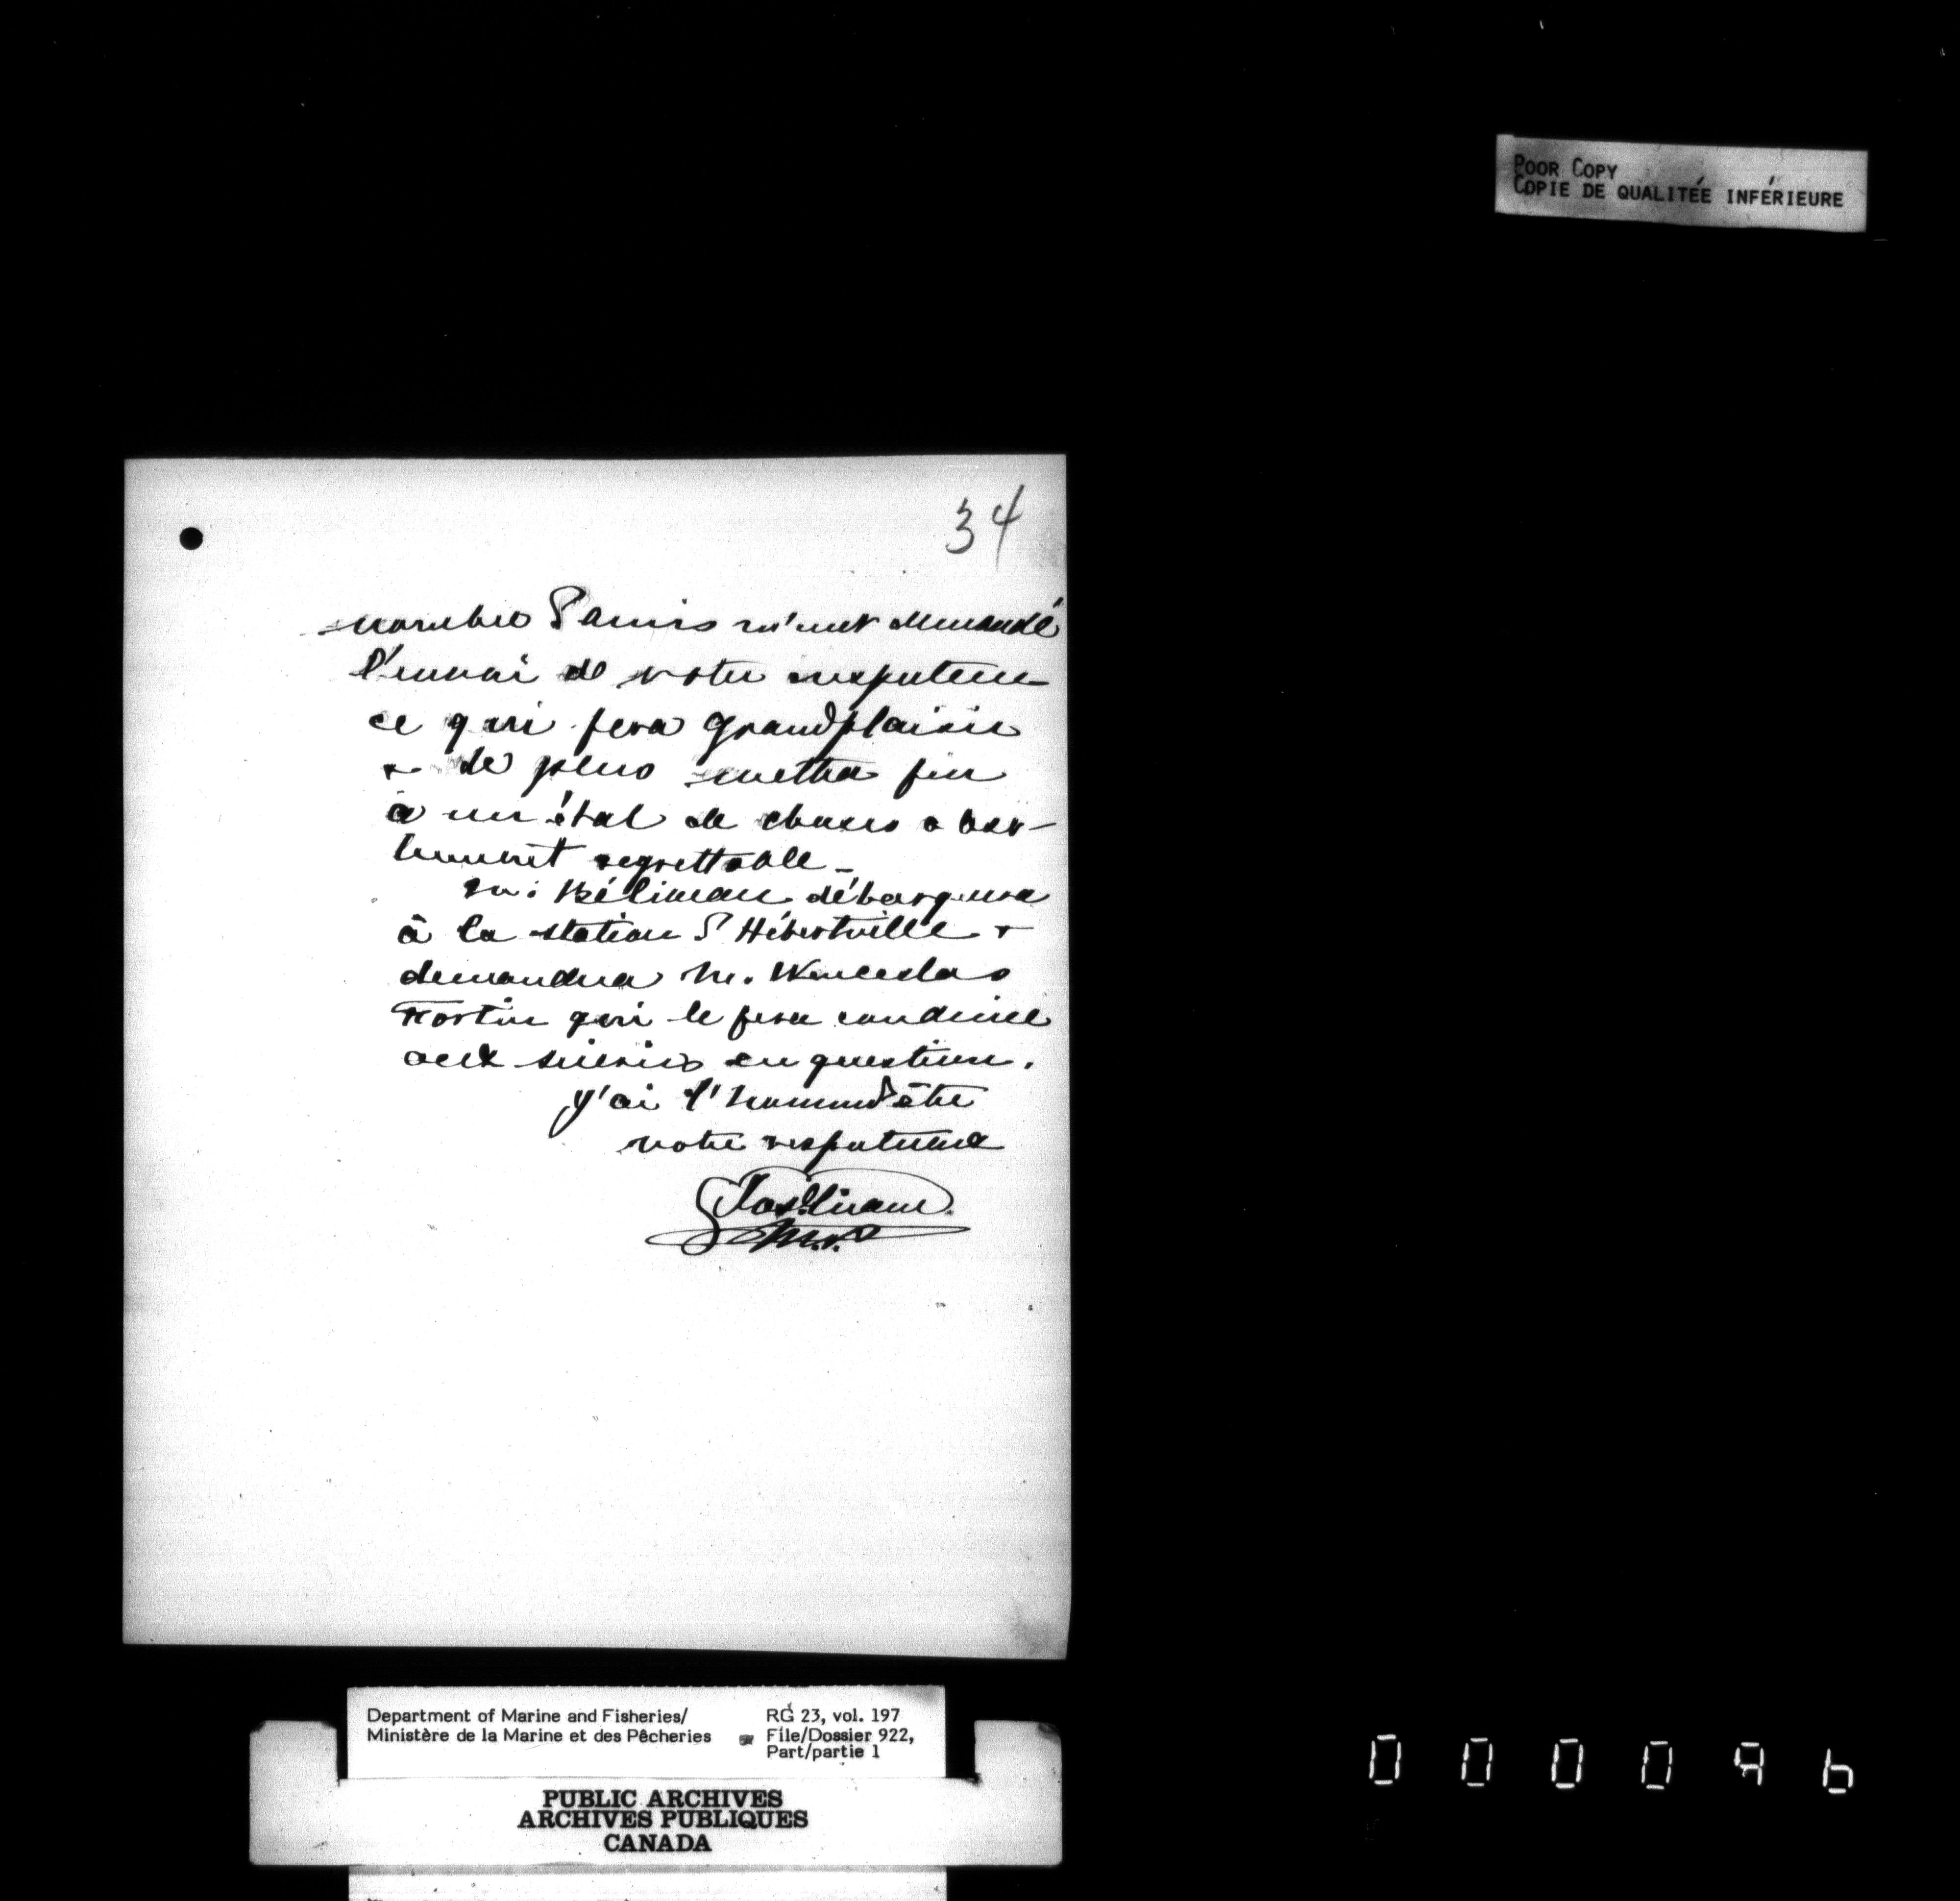 POOR COPY
COPIE DE QUALITÉE INFÉRIEURE
34
nombre d'amis m'ont demandé
l'envoi de votre inspecteur
ce qui fera grand plaisir
& de plus mettra fin
à un état de choses abso-
lument regrettable _
M. Béliveau débarquera
à la station d'Hébertville &
demandera M. Wenceslas
Fortin qui le fera conduire
aux scieries en question.
J'ai l'honneur d'être
votre respectueux
Jos. Girard
M.P.
Department of Marine and Fisheries/
Ministère de la Marine et des Pêcheries
RG 23, vol. 197
File/Dossier 922,
Part/partie 1
PUBLIC ARCHIVES
ARCHIVES PUBLIQUES
CANADA
000096